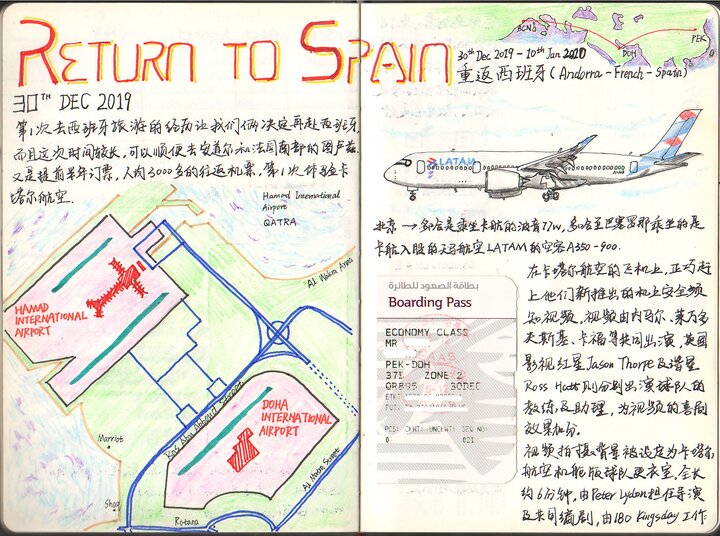 RETURN TO SPAIN
30TH DEC 2019
第1次去西班牙旅游的经历让我们俩决定再赴西班牙,
而且这次时间较长,可以顺便去安道尔和法国南部的图卢兹.
又是提前半年订票,人均3000多的往返机票,第1次体验卡
塔尔航空.
Hamad International
Airport
QATRA
Al Matar Area
HAMAD
INTERNATIONAL
AIRPORT
DOHA
INTERNATIONAL
AIRPORT
Ras Abu Abboud Street
Al Matar Street
Marriot
Shaq
Rotana
BCN
DOH
PEK
30th Dec 2019 - 10th Jan 2020
重返西班牙(Andorra-French-Spain)
LATAM
北京→多哈是乘坐卡航的波音77W,多哈至巴塞罗那乘坐的是
卡航入股的天马航空LATAM的空客A350-900.
بطاقة الصعود للطائرة
Boarding Pass
ECONOMY CLASS
MR
PEK-DOH
37E ZONE 2
QR895 30DEC
ETKT
PCS/ CKWT/ UNCKWT/ SEQ NO
0 021
在卡塔尔航空的飞机上,正巧赶
上他们新推出的机上安全须
知视频,视频由内马尔、莱万多
夫斯基、卡福等共同出演,英国
影视红星Jason Thorpe及谐星
Ross Hatt则分别出演球队的
教练及助理,为视频的喜剧
效果加分.
视频拍摄背景被设定为卡塔尔
航空机舱版球队更衣室,全长
约6分钟,由Peter Lydon担任导演
及共同编剧,由180 Kingsday工作